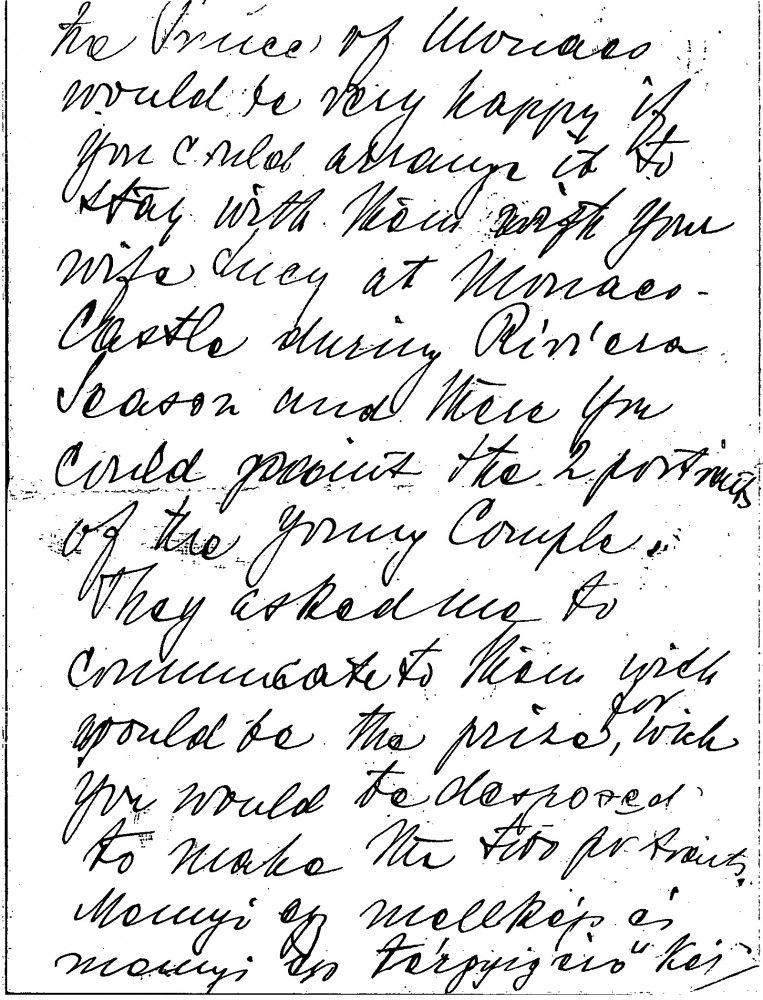 the Prince of Monaco
would be very happy if
you could arrange it to
stay with them with your
wife Lucy at Monaco-
Castle during Riviera
Season and there you
could paint the 2 portraits
of the Young Couple.
They asked me to
communicate to them wich
would be the prize, for wich
you would be desposed
to make the two portraits.
Mennyi egy mellkép és
mennyi egy térdig érő kép